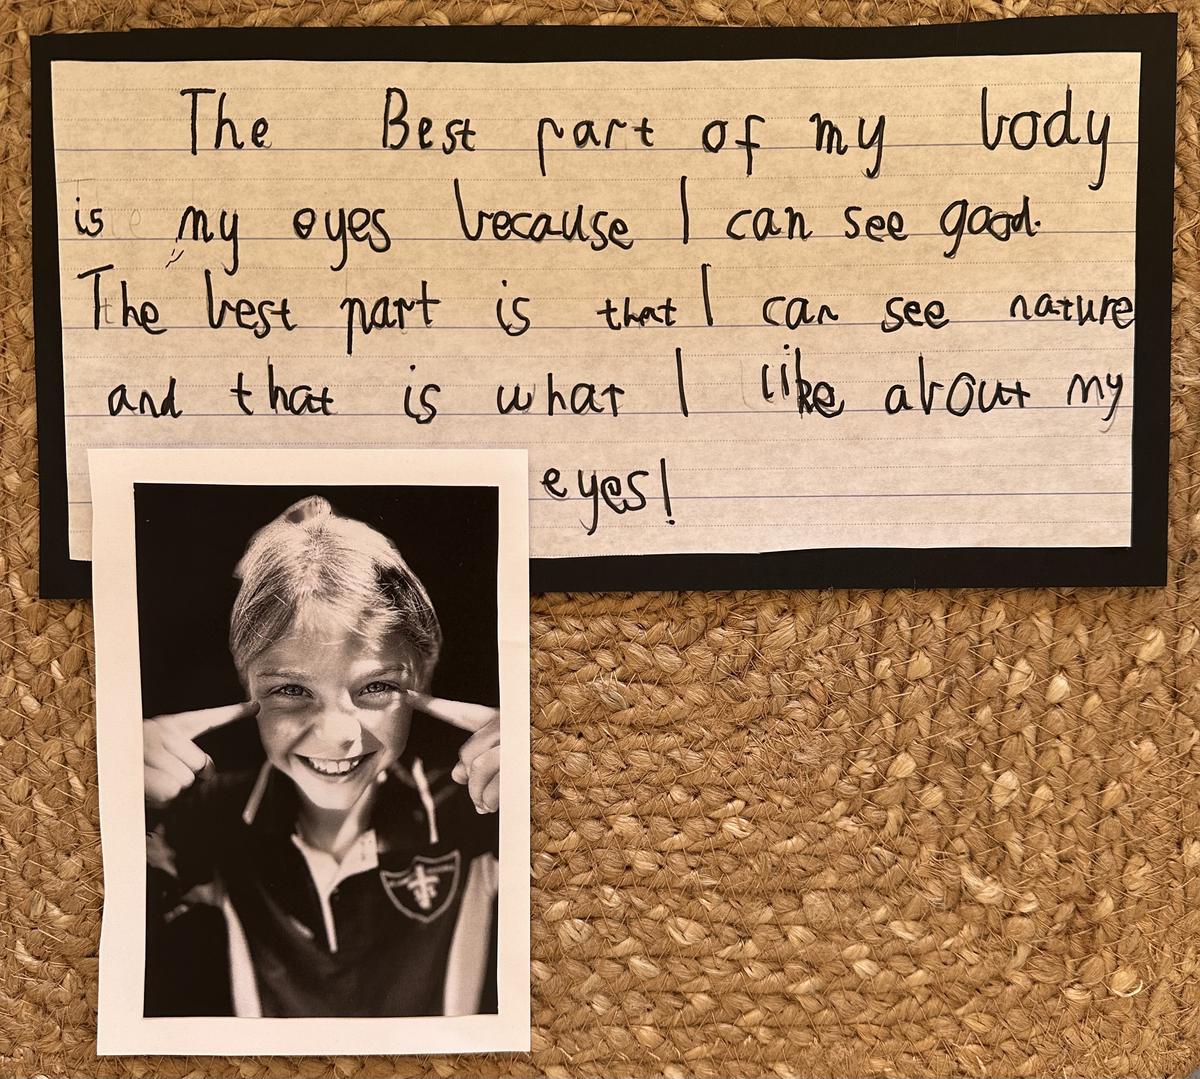 The Best part of my body
is my eyes because I can see good.
The best part is that I can see nature
and that is what I like about my
eyes!